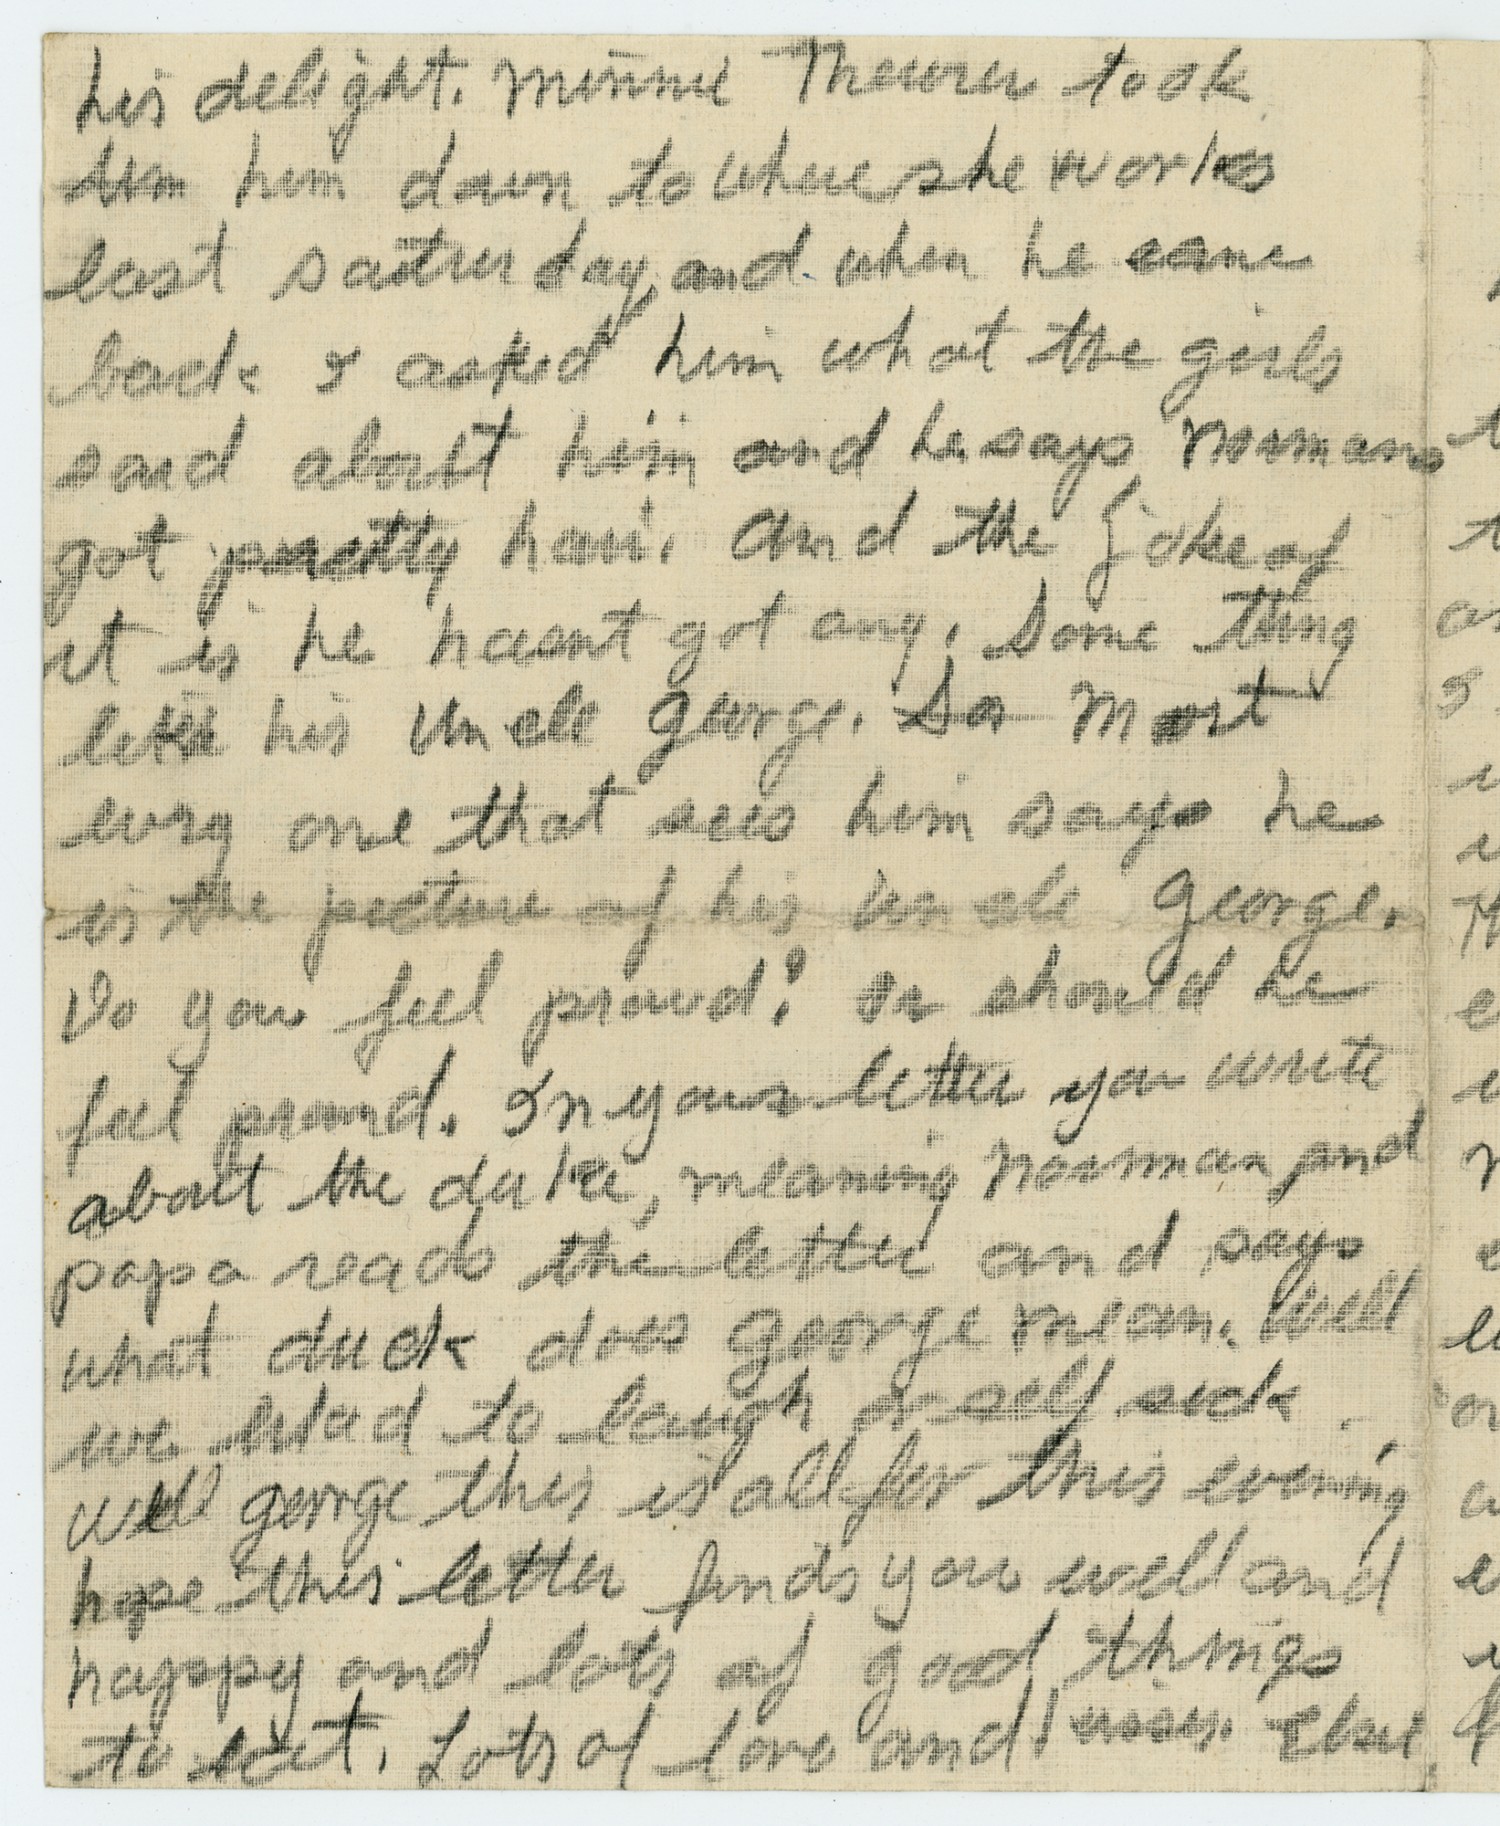 his delight. Minnie Theurer took
him him down to where she works
last saturday, and when he came
back I asked him what the girls
said about him and he says Normans
got pretty hair. And the joke of
it is he haent got any. Some thing
like his Uncle George. Son Most
evry one that sees him says he
is the picture of his Uncle George.
Do you feel proud? or should he
feel proud. In your letter you write
about the duke, meaning Norman and
papa reads the letter and says
what duck does George mean. Well
we had to laugh ourself sick.
Well George this is all for this evening
hope this letter finds you well and
happy and lots of good things
to eat. Lots of love and Elsie